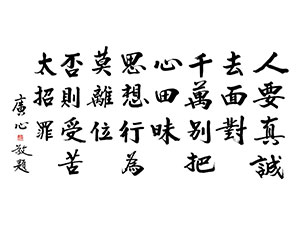 人要真誠
去面對
千萬別把
心田昧
思想行為
莫離位
否則受苦
太招罪
廣心敬題